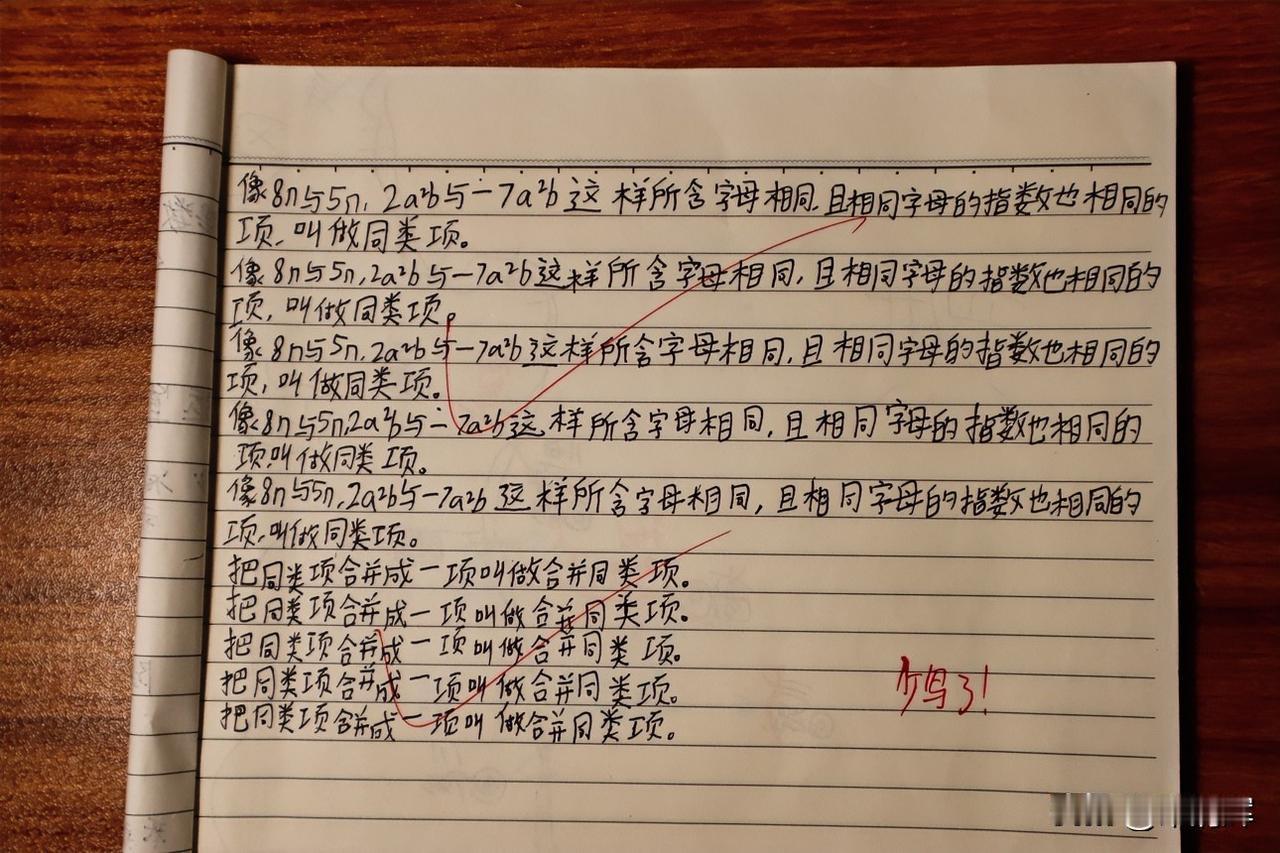 像8n与5n,2a²b与-7a²b这样所含字母相同,且相同字母的指数也相同的
项,叫做同类项。
像8n与5n,2a²b与-7a²b这样所含字母相同,且相同字母的指数也相同的
项,叫做同类项。
像8n与5n,2a²b与-7a²b这样所含字母相同,且相同字母的指数也相同的
项,叫做同类项。
像8n与5n,2a²b与-7a²b这样所含字母相同,且相同字母的指数也相同的
项,叫做同类项。
像8n与5n,2a²b与-7a²b这样所含字母相同,且相同字母的指数也相同的
项,叫做同类项。
把同类项合并成一项叫做合并同类项。
把同类项合并成一项叫做合并同类项。
把同类项合并成一项叫做合并同类项。
把同类项合并成一项叫做合并同类项。
把同类项合并成一项叫做合并同类项。
少写了!